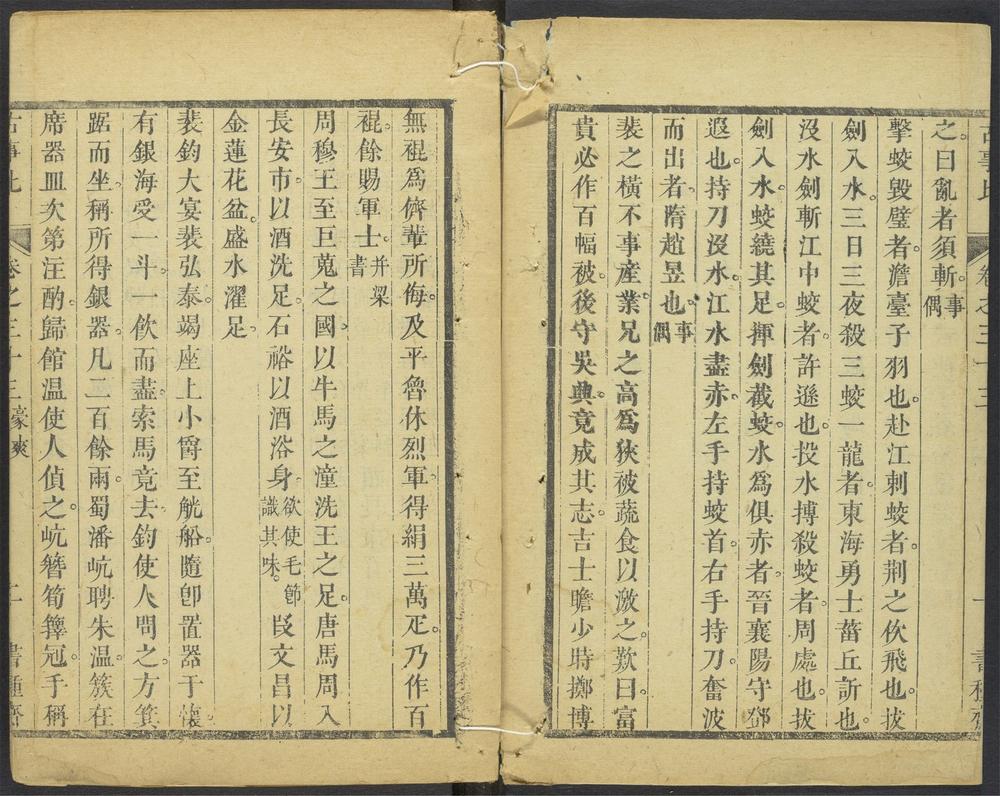 古事比 卷之三十三 一 書種齋
之曰亂者須斬事偶
擊蛟毀璧者澹臺子羽也赴江刺蛟者荆之佽飛也拔
劍入水三日三夜殺三蛟一龍者東海勇士菑丘訢也
沒水劍斬江中蛟者許遜也投水搏殺蛟者周處也拔
劍入水蛟繞其足揮劍截蛟水爲俱赤者晉襄陽守鄧
遐也持刀沒水江水盡赤左手持蛟首右手持刀奮波
而出者隋趙昱也事偶
裴之橫不事産業兄之高爲狹被蔬食以激之歎曰富
貴必作百幅被後守吳興竟成其志吉士瞻少時擲博
無裩爲儕輩所侮及平魯休烈軍得絹三萬疋乃作百
裩餘賜軍士并梁書
周穆王至巨蒐之國以牛馬之湩洗王之足唐馬周入
長安市以酒洗足石裕以酒浴身欲使毛節識其味段文昌以
金蓮花盆盛水濯足
裴鈞大宴裴弘泰竭座上小爵至觥船隨卽置器于懷
有銀海受一斗一飲而盡索馬竟去鈞使人問之方箕
踞而坐稱所得銀器凡二百餘兩蜀潘炕聘朱温簇在
席器皿次第注酌歸館温使人偵之炕簪筍籜冠手稱
古事比 卷之三十三豪爽 二 書種齋